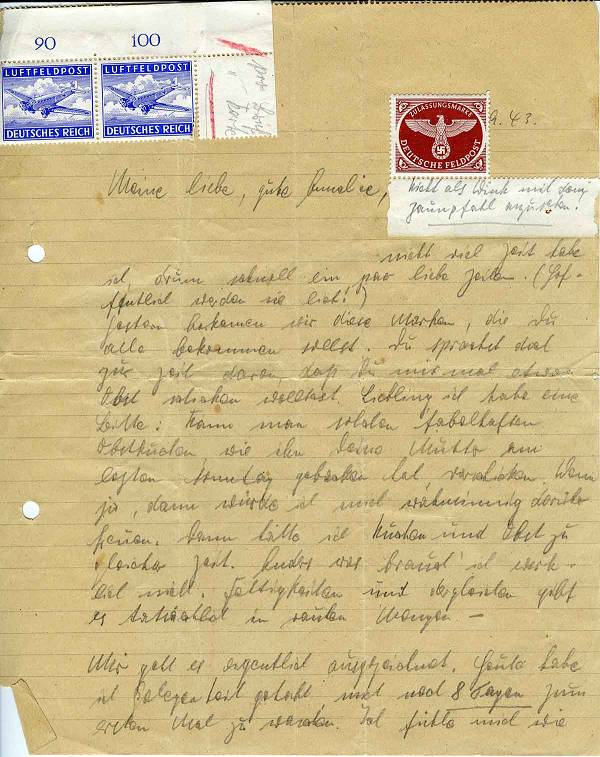 90 100
LUFTFELDPOST LUFTFELDPOST
DEUTSCHES REICH DEUTSCHES REICH
ZULASSUNGSMARKE
DEUTSCHE FELDPOST
9. 43.
Meine liebe, gute
nicht als Wink mit dem
Zaunpfahl anzusehen!
nicht viel Zeit habe
ich, drum schnell ein paar liebe Zeilen. (Hof-
fentlich werden sie lieb!)
Gestern bekamen wir diese Marken, die Du
alle bekommen sollst. Du sprachst doch
zur Zeit davon, daß Du mir mal etwas
Obst schicken wolltest. Liebling ich habe eine
Bitte: Kann man solchen fabelhaften
Obstkuchen, wie ihn Deine Mutter am
letzten Sonntag gebacken hat, verschicken. Wenn
ja, dann würde ich mich wahnsinnig darüber
freuen. Dann hätte ich Kuchen und Obst zu
gleicher Zeit. Anders was brauch' ich wirk-
lich nicht. Süßigkeiten und dergleichen gibt
es in rauhen Mengen —
Mir geht es eigentlich ausgezeichnet. Heute habe
ich Gelegenheit gehabt, mich nach 8 Tagen zum
ersten Mal zu waschen. Ich fühle mich wie